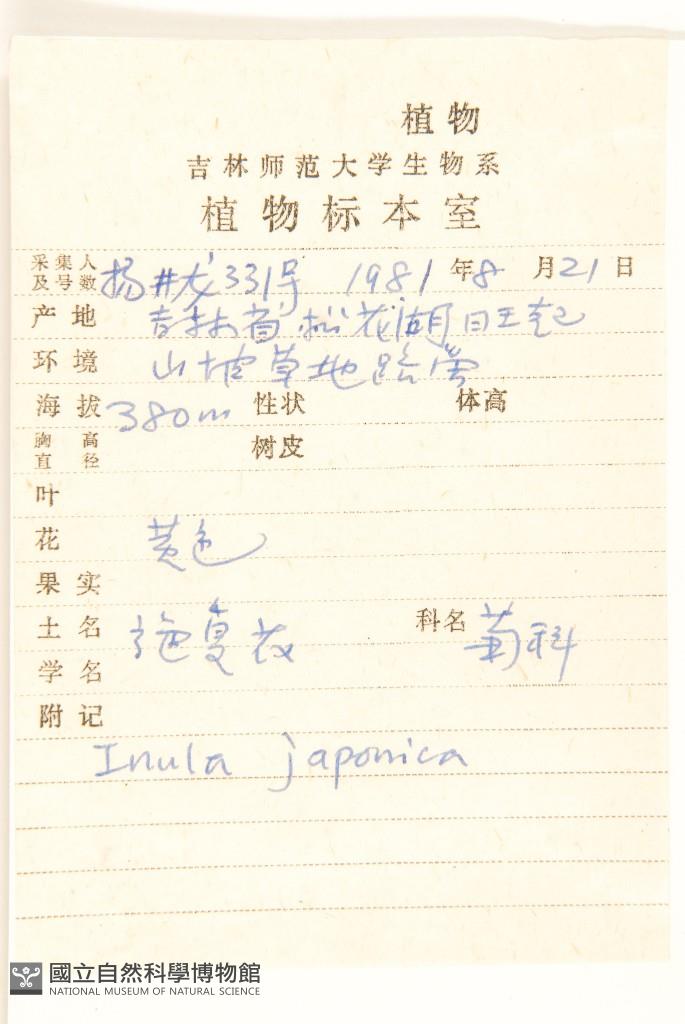 植物
吉林师范大学生物系
植物标本室
采集人及号数 杨井龙331号 1981年8月21日
产地 吉林省松花湖旺起
环境 山坡草地路旁
海拔 380m 性状 体高
胸高直径 树皮
叶
花 黄色
果实
土名 旋复花 科名 菊科
学名
附记
Inula japonica
國立自然科學博物館
NATIONAL MUSEUM OF NATURAL SCIENCE